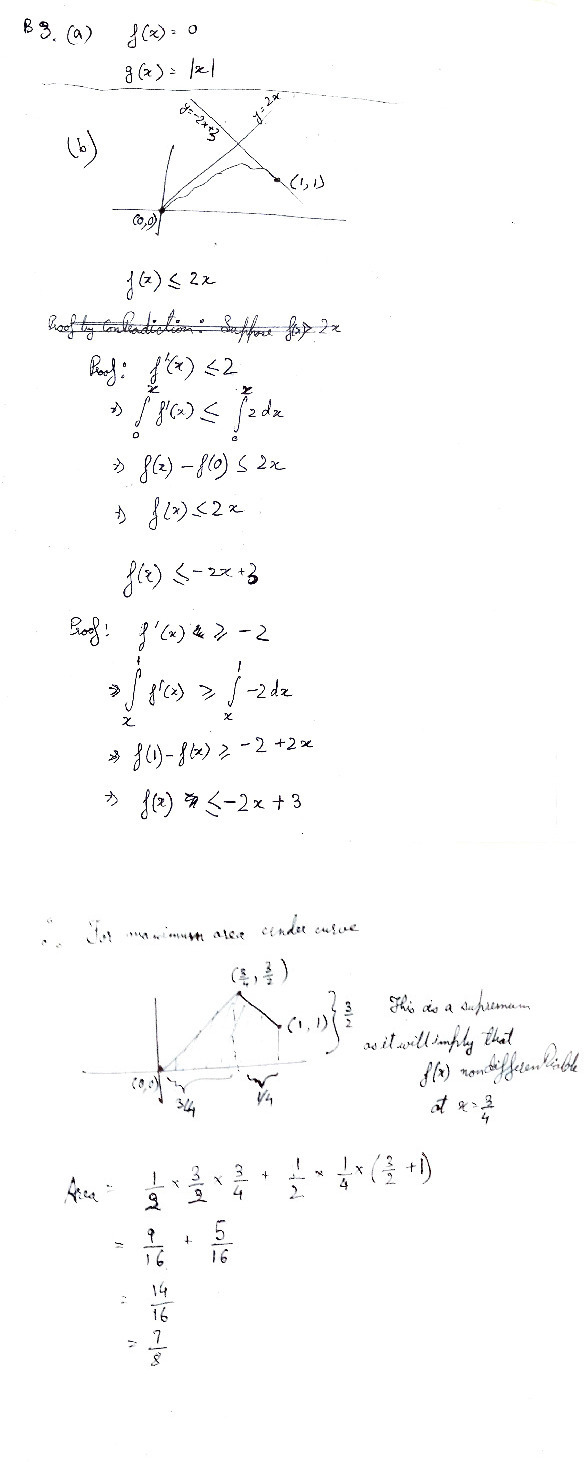 B 3. (a) f(x) = 0
g(x) = |x|
(b)
y=-2x+3
y=2x
(1,1)
(0,0)
f(x) ≤ 2x
Proof by Contradiction: Suppose f(x) > 2x
Proof: f'(x) ≤ 2
⇒ ∫₀ˣ f'(x) ≤ ∫₀ˣ 2 dx
⇒ f(x) - f(0) ≤ 2x
⇒ f(x) ≤ 2x
f(x) ≤ -2x+3
Proof: f'(x) ≥ -2
⇒ ∫ₓ¹ f'(x) ≥ ∫ₓ¹ -2 dx
⇒ f(1) - f(x) ≥ -2 + 2x
⇒ f(x) ≤ -2x + 3
∴ For maximum area under curve
(3/4, 3/2)
(1,1) } 3/2
(0,0)
3/4
1/4
This is a supremum
as it will imply that
f(x) nondifferentiable
at x = 3/4
Area = 1/2 × 3/2 × 3/4 + 1/2 × 1/4 × (3/2 + 1)
= 9/16 + 5/16
= 14/16
= 7/8